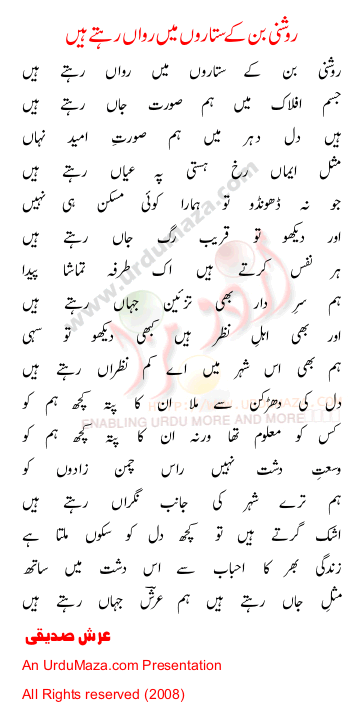 روشنی بن کے ستاروں میں رواں رہتے ہیں
روشنی بن کے ستاروں میں رواں رہتے ہیں
جسم افلاک میں ہم صورت جاں رہتے ہیں
ہیں دل دہر میں ہم صورتِ امید نہاں
مثل ایماں رخِ ہستی پہ عیاں رہتے ہیں
جو نہ ڈھونڈو تو ہمارا کوئی مسکن ہی نہیں
اور دیکھو تو قریب رگ جاں رہتے ہیں
ہر نفس کرتے ہیں اک طرفہ تماشا پیدا
ہم سرِ دار بھی تزئین جہاں رہتے ہیں
اور بھی اہلِ نظر ہیں کبھی دیکھو تو سہی
ہم بھی اس شہر میں اے کم نظراں رہتے ہیں
دل کی دھڑکن سے ملا ان کا پتہ کچھ ہم کو
کس کو معلوم تھا ورنہ ان کا پتہ کچھ ہم کو
وسعتِ دشت نہیں راس چمن زادوں کو
ہم ترے شہر کی جانب نگراں رہتے ہیں
اشک گرتے ہیں تو کچھ دل کو سکوں ملتا ہے
زندگی بھر کا احباب سے اس دشت میں ساتھ
مثلِ جاں رہتے ہیں ہم عرشؔ جہاں رہتے ہیں
عرش صدیقی
An UrduMaza.com Presentation
All Rights reserved (2008)
www.urdumaza.com
اردو مزا
HTTP://WWW.URDUMAZA.COM
ENABLING URDU MORE AND MORE